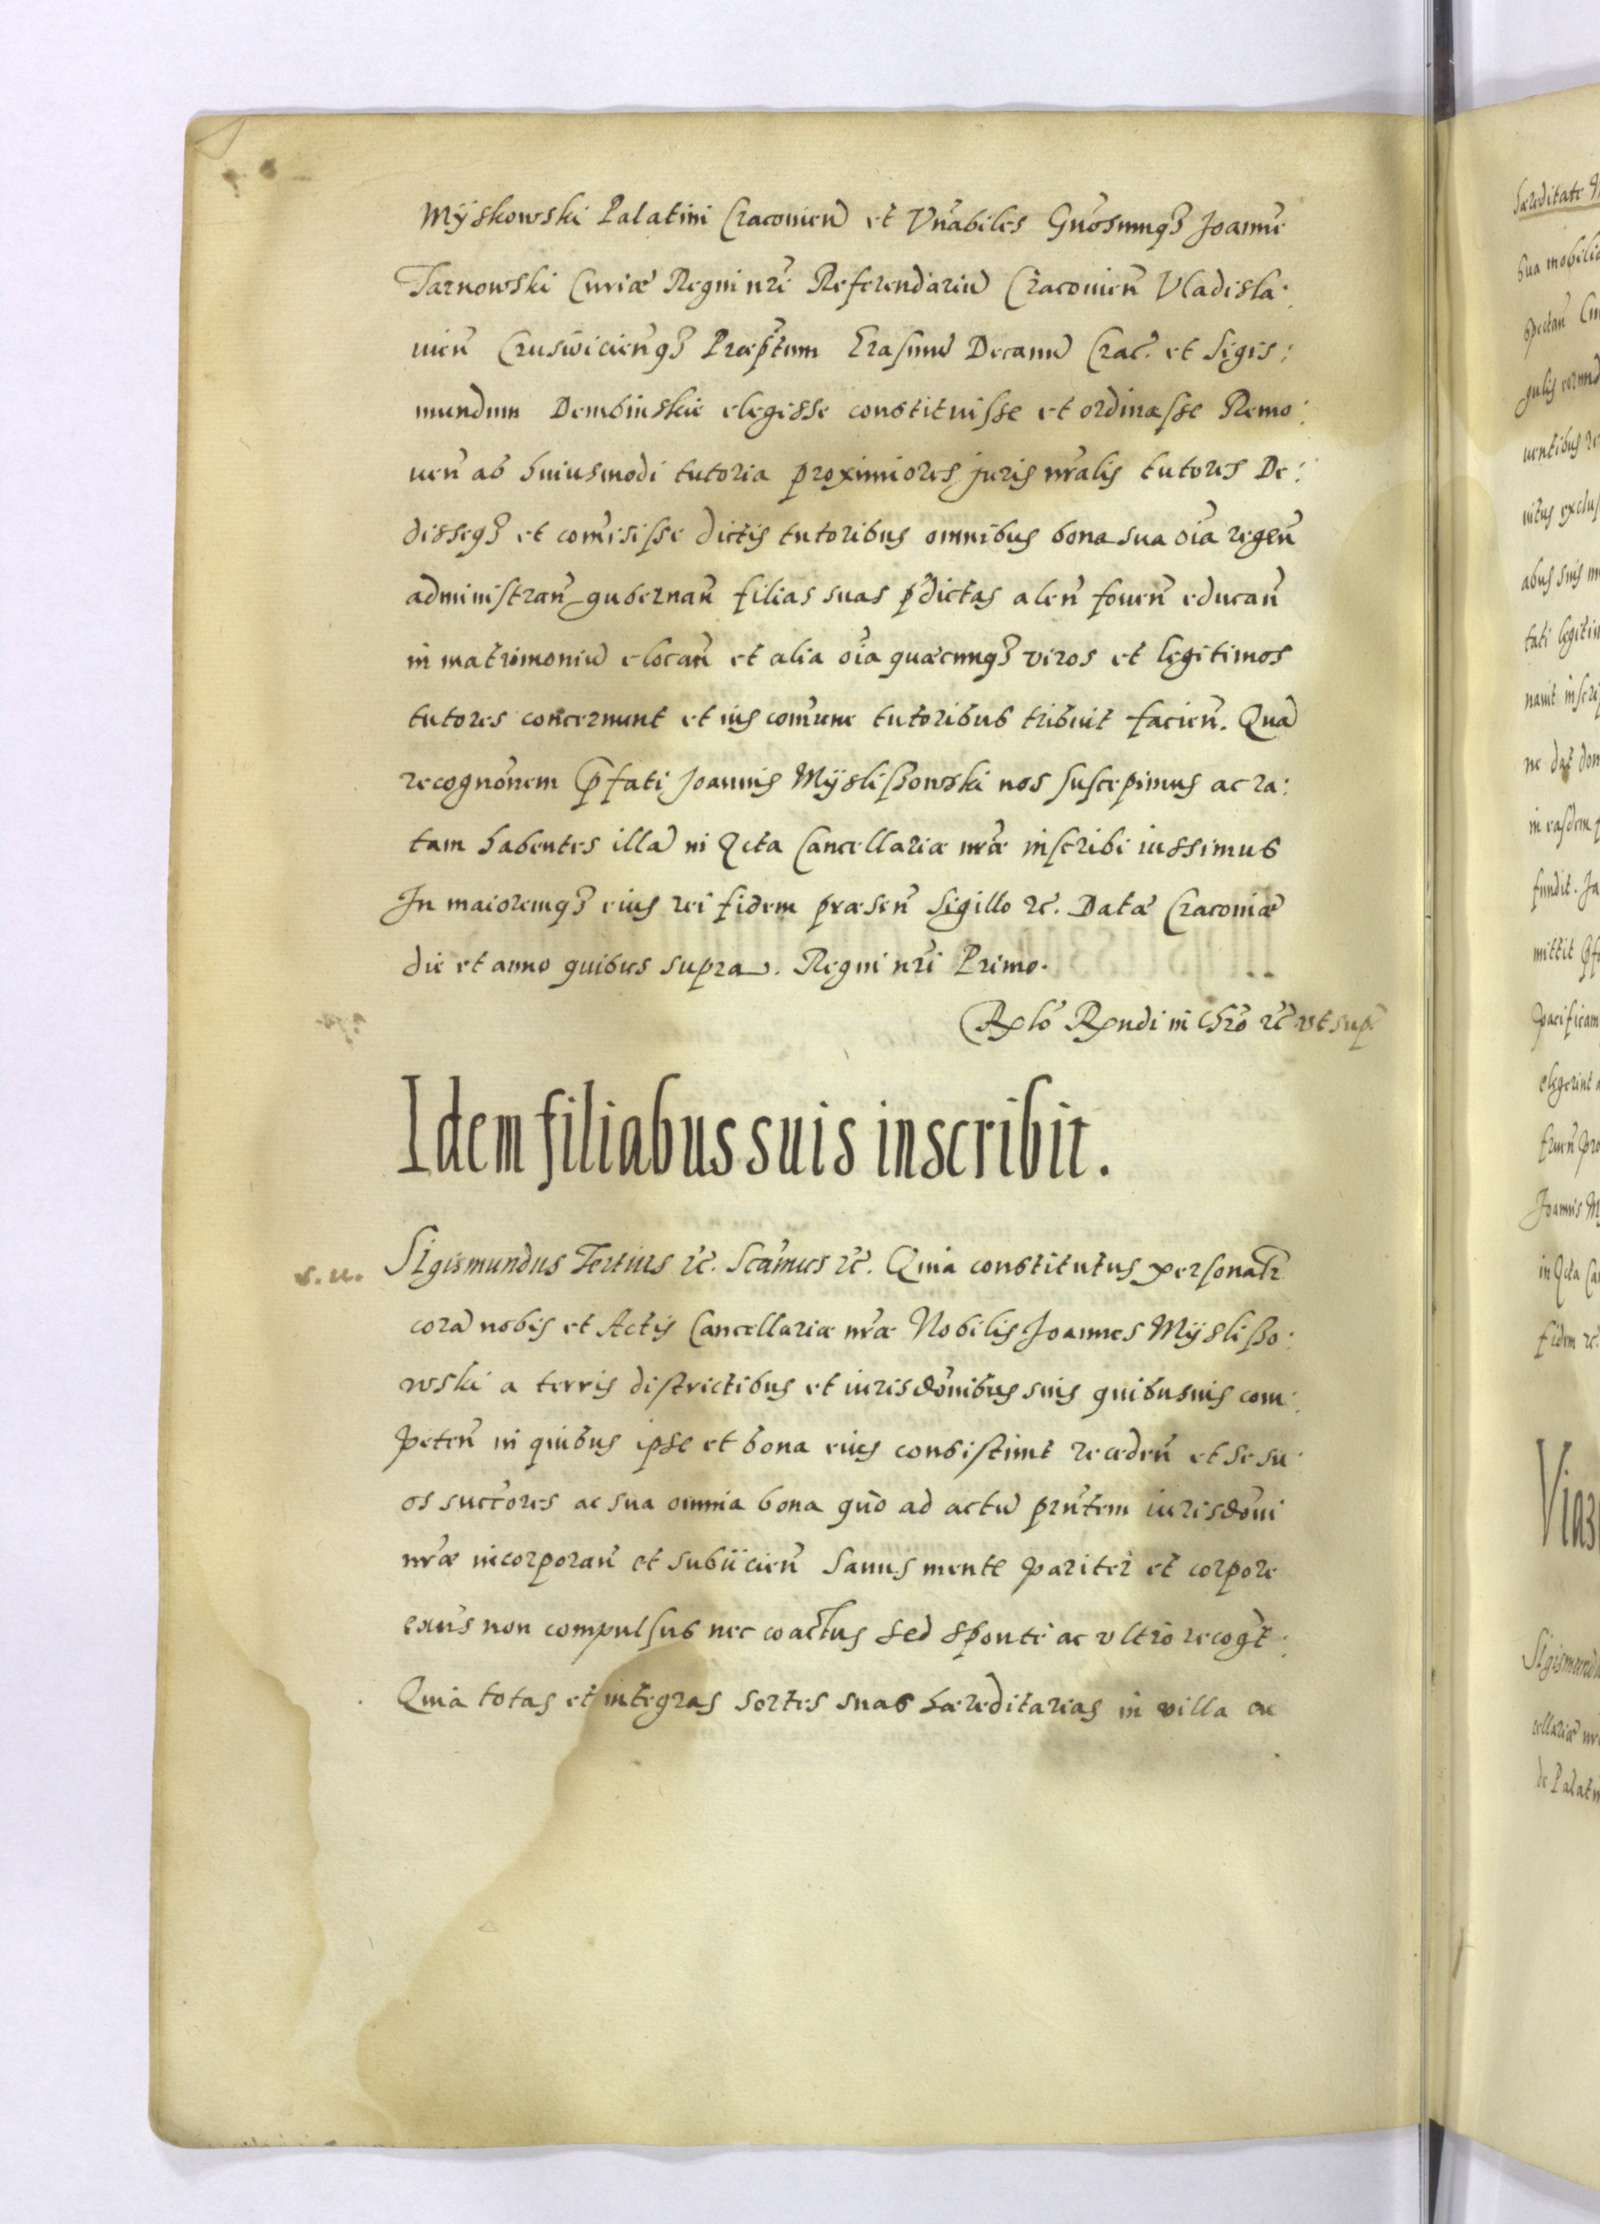 Myskowski Palatini Cracovien et Vnabiles Gnosumq3 Joanne
Tarnowski Curiæ Regni nri Referendariu Cracovien Vladisla:
uien Cruswicienq3 Præptum Erasmu Decanu Crac. et Sigis:
mundum Dembinskie elegisse constituisse et ordinasse Remo:
uen ab huiusmodi tutoria proximiores juris nralis tutores De:
disseq3 et comisisse dictis tutoribus omnibus bona sua oia regen
administran gubernan filias suas pdictas alen fouen educan
in matrimoniu elocan et alia oia quæcunq3 viros et legitimos
tutores concernunt et ius comune tutoribus tribuit facien. Qua
recognonem pfati Joannis Mÿslißowski nos suscepimus ac ra:
tam habentes illa in Acta Cancellariæ nræ inscribi iussimus
In maioremq3 eius rei fidem præsen sigillo 2c. Datæ Cracoviæ
die et anno quibus supra. Regni nri Primo.
Rplo Rpndi in Chro 2c vt sup
Idem filiabus suis inscribit.
s. u. Sigismundus Tertius 2c. Scamus 2c. Quia constitutus personalr
cora nobis et Actis Cancellariæ nræ Nobilis Joannes Mÿslißo:
wski a terris districtibus et iurisdonibus suis quibusuis com:
peten in quibus ipse et bona eius consistunt receden et se su:
os succores ac sua omnia bona quo ad actu prntem iurisdoni
nræ incorporan et subiicien sanus mente pariter et corpore
exns non compulsus nec coactus sed sponte ac vltro recogt:
Quia totas et integras sortes suas hæreditarias in villa